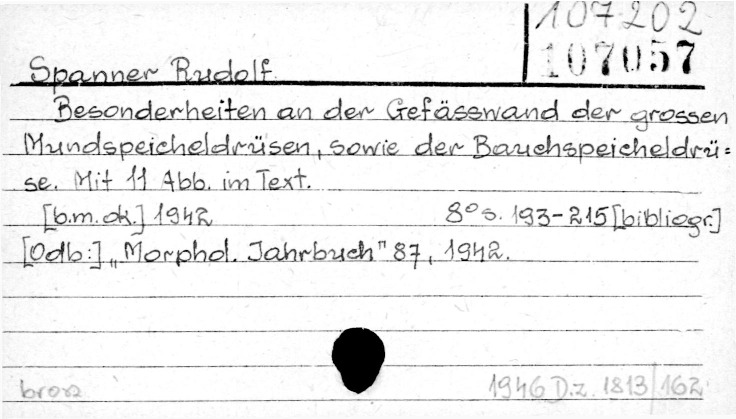 107202
107057
Spanner Rudolf
Besonderheiten an der Gefässwand der grossen
Mundspeicheldrüsen, sowie der Bauchspeicheldrü=
se. Mit 11 Abb. im Text.
[b.m.dk.] 1942 8º s. 193-215 [bibliogr.]
[Odb:] „Morphol. Jahrbuch" 87, 1942.
brosz 1946 D.z. 1813/162